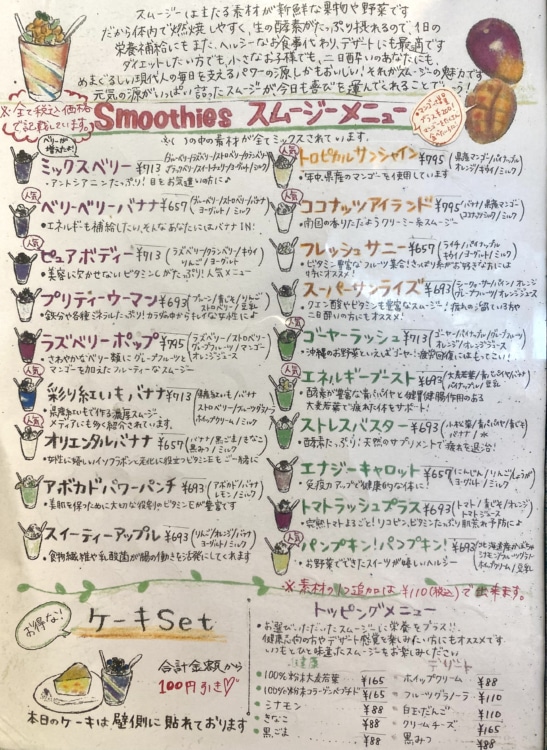 スムージーは主たる素材が新鮮な果物や野菜です
だから体内で燃焼しやすく、生の酵素がたっぷり摂れるので、1日の
栄養補給にもまた、ヘルシーなお食事代わり、デザートにも最適です
ダイエットしたい方でも、小さなお子様でも、二日酔いのあなたにも、
めまぐるしい現代人の毎日を支えるパワーの源しかもおいしい!それがスムージーの魅力です
元気の源がいっぱい詰ったスムージーが今日も喜びを運んでくれることでしょう!
※全て税込価格で記載しています。
Smoothies スムージーメニュー
※( )の中の素材が全てミックスされています。
ベリーが増えたよ!
ミックスベリー ¥913
・アントシアニンたっぷり!目をお気遣いの方に♪
人気
ベリーベリーバナナ ¥657
ヨーグルト/ミルク
・エネルギーも補給したい、そんなあなたにはバナナIN!
人気
ピュアボディー ¥913 (ラズベリー/クランベリー/キウイ
りんご/ヨーグルト
・美容に欠かせないビタミンCがたっぷり!人気メニュー
プリティーウーマン ¥693 (プルーン/青じそ/りんご
ストロベリー/豆乳
・鉄分や各種ミネラルたっぷり!カラダの中からキレイな女性に♪
ラズベリーポップ ¥795 (ラズベリー/ストロベリー
グレープフルーツ/マンゴー
オレンジジュース
・さわやかなベリー類にグレープフルーツと
マンゴーを加えたフルーティーなスムージー
彩り紅いもバナナ ¥713 (県産紅いも/バナナ
ストロベリー/フルーツグラノーラ
ホイップクリーム/ミルク
・県産紅いもで作る濃厚スムージー
メディアにも多く紹介されています。
人気
オリエンタルバナナ ¥657 (バナナ/黒ごま/きなこ
黒みつ/ミルク
・女性に嬉しいイソフラボンと老化に役立つビタミンEもご一緒に
アボカドパワーパンチ ¥693 (アボカド/バナナ
レモン/ミルク
・美肌を保つために大切な役割のビタミンEが豊富です
スイーティーアップル ¥693 (りんご/オレンジ/バナナ
ヨーグルト/ミルク
・食物繊維や乳酸菌が腸の働きを活発にしてくれます
人気
トロピカルサンシャイン ¥795 (県産マンゴー/パイナップル
オレンジ/キウイ/ミルク
・年中、県産のマンゴーを使用しています
人気
ココナッツアイランド ¥795 (バナナ/県産マンゴー
ココナッツミルク/ミルク
・南国の香りただようクリーミー系スムージー
フレッシュサニー ¥657 (ライチ/パイナップル
キウイ/ヨーグルト/ミルク
・ビタミン豊富なフルーツ集合!さっぱり系がお好きな方には
特にオススメ!
スーパーサンライズ ¥693 (シークヮーサー/パイン/オレンジ
グレープフルーツ/オレンジジュース
・クエン酸やビタミンも豊富なスムージー!疲れの残っている方や
二日酔いの方にもオススメ!
人気
ゴーヤーラッシュ ¥713 (ゴーヤー/パイナップル/グレープフルーツ
オレンジ/オレンジジュース
・沖縄のお野菜といえばゴーヤー!疲労回復にはもってこい!
エネルギーブースト ¥693 (大麦若葉/青パパイヤ/バナナ
パイナップル/豆乳
・酵素が豊富な青パパイヤと健胃整腸作用のある
大麦若葉で疲れた体をサポート!
ストレスバスター ¥693 (小松菜/青パパイヤ/青じそ
バナナ/水
・酵素たっぷり!天然のサプリメントで疲れを退治!
エナジーキャロット ¥657 (にんじん/りんご/しょうが
ヨーグルト/ミルク
・免疫力アップで健康的な体に!
トマトラッシュプラス ¥693 (トマト/青じそ/オレンジ
トマトジュース
・完熟トマトまるごと!リコピン、ビタミンたっぷり肌荒れ予防に♪
人気
パンプキン!パンプキン! ¥693 (北海道産かぼちゃ
シナモン/フルーツグラノーラ
ホイップクリーム/豆乳
・お野菜でできたスイーツが嬉しいヘルシー
※素材の1つ追加は¥110(税込)で出来ます。
お得な!
ケーキSet
合計金額から
100円引き♡
本日のケーキは壁側に貼れております
トッピングメニュー
・お選びいただいたスムージーに栄養をプラス!!
健康志向の方やデザート感覚を楽しみたい方にもオススメです
いつもとひと味違ったスムージーをお楽しみください
健康
・100%粉末大麦若葉 ¥165
・100%粉末コラーゲンペプチド ¥165
・シナモン ¥88
・きなこ ¥88
・黒ごま ¥88
デザート
・ホイップクリーム ¥88
・フルーツグラノーラ ¥110
・白玉だんご ¥110
・クリームチーズ ¥165
・黒みつ ¥88